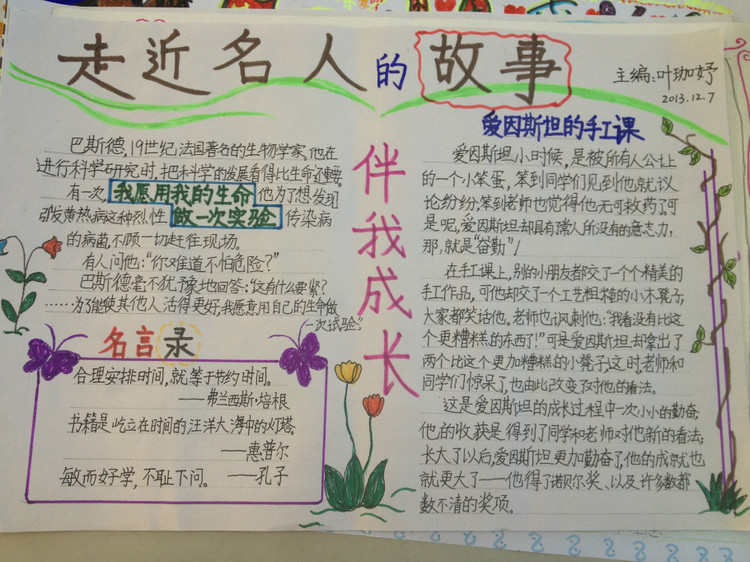 走近名人的故事
主编:叶珈妤
2013.12.7
巴斯德,19世纪法国著名的生物学家,他在
进行科学研究时,把科学的发展看得比生命还重要。
有一次,我愿用我的生命他为了想发现
引发黄热病这种烈性做一次实验传染病
的病菌,不顾一切赶往现场。
有人问他:“你难道不怕危险?”
巴斯德毫不犹豫地回答:“这有什么要紧?
……为了能使其他人活得更好,我愿意用自己的生命做
一次试验”
名言录
合理安排时间,就等于节约时间。
——弗兰西斯·培根
书籍是屹立在时间的汪洋大海中的灯塔。
——惠普尔
敏而好学,不耻下问。——孔子
伴我成长
爱因斯坦的手工课
爱因斯坦小时候,是被所有人公认上
的一个小笨蛋,笨到同学们见到他就议
论纷纷,笨到老师也觉得他无可救药了。可
是呢,爱因斯坦却具有常人所没有的意志力,
那,就是“奋勤”!
在手工课上,别的小朋友都交了一个个精美的
手工作品,可他却交了一个工艺粗糙的小木凳子,
大家都笑话他。老师也讽刺他:“我看没有比这
个更糟糕的东西了!”可是爱因斯坦却拿出了
两个比这个更加糟糕的小凳子。这时,老师和
同学们惊呆了,也由此改变了对他的看法。
这是爱因斯坦的成长过程中一次小小的勤奋,
他的收获是得到了同学和老师对他新的看法;
长大了以后,爱因斯坦更加勤奋了,他的成就也
就更大了——他得了诺贝尔奖、以及许多数都
数不清的奖项。